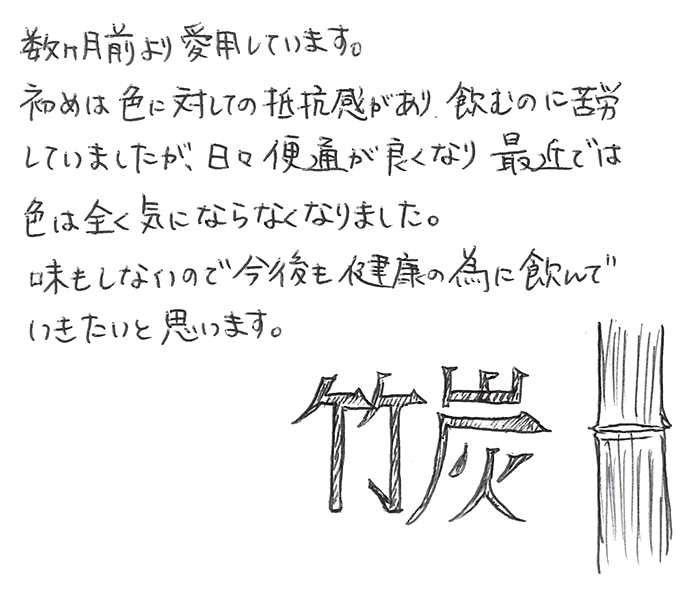 数ヶ月前より愛用しています。
初めは色に対しての抵抗感があり、飲むのに苦労
していましたが、日々便通が良くなり最近では
色は全く気にならなくなりました。
味もしないので今後も健康の為に飲んで
いきたいと思います。
竹炭